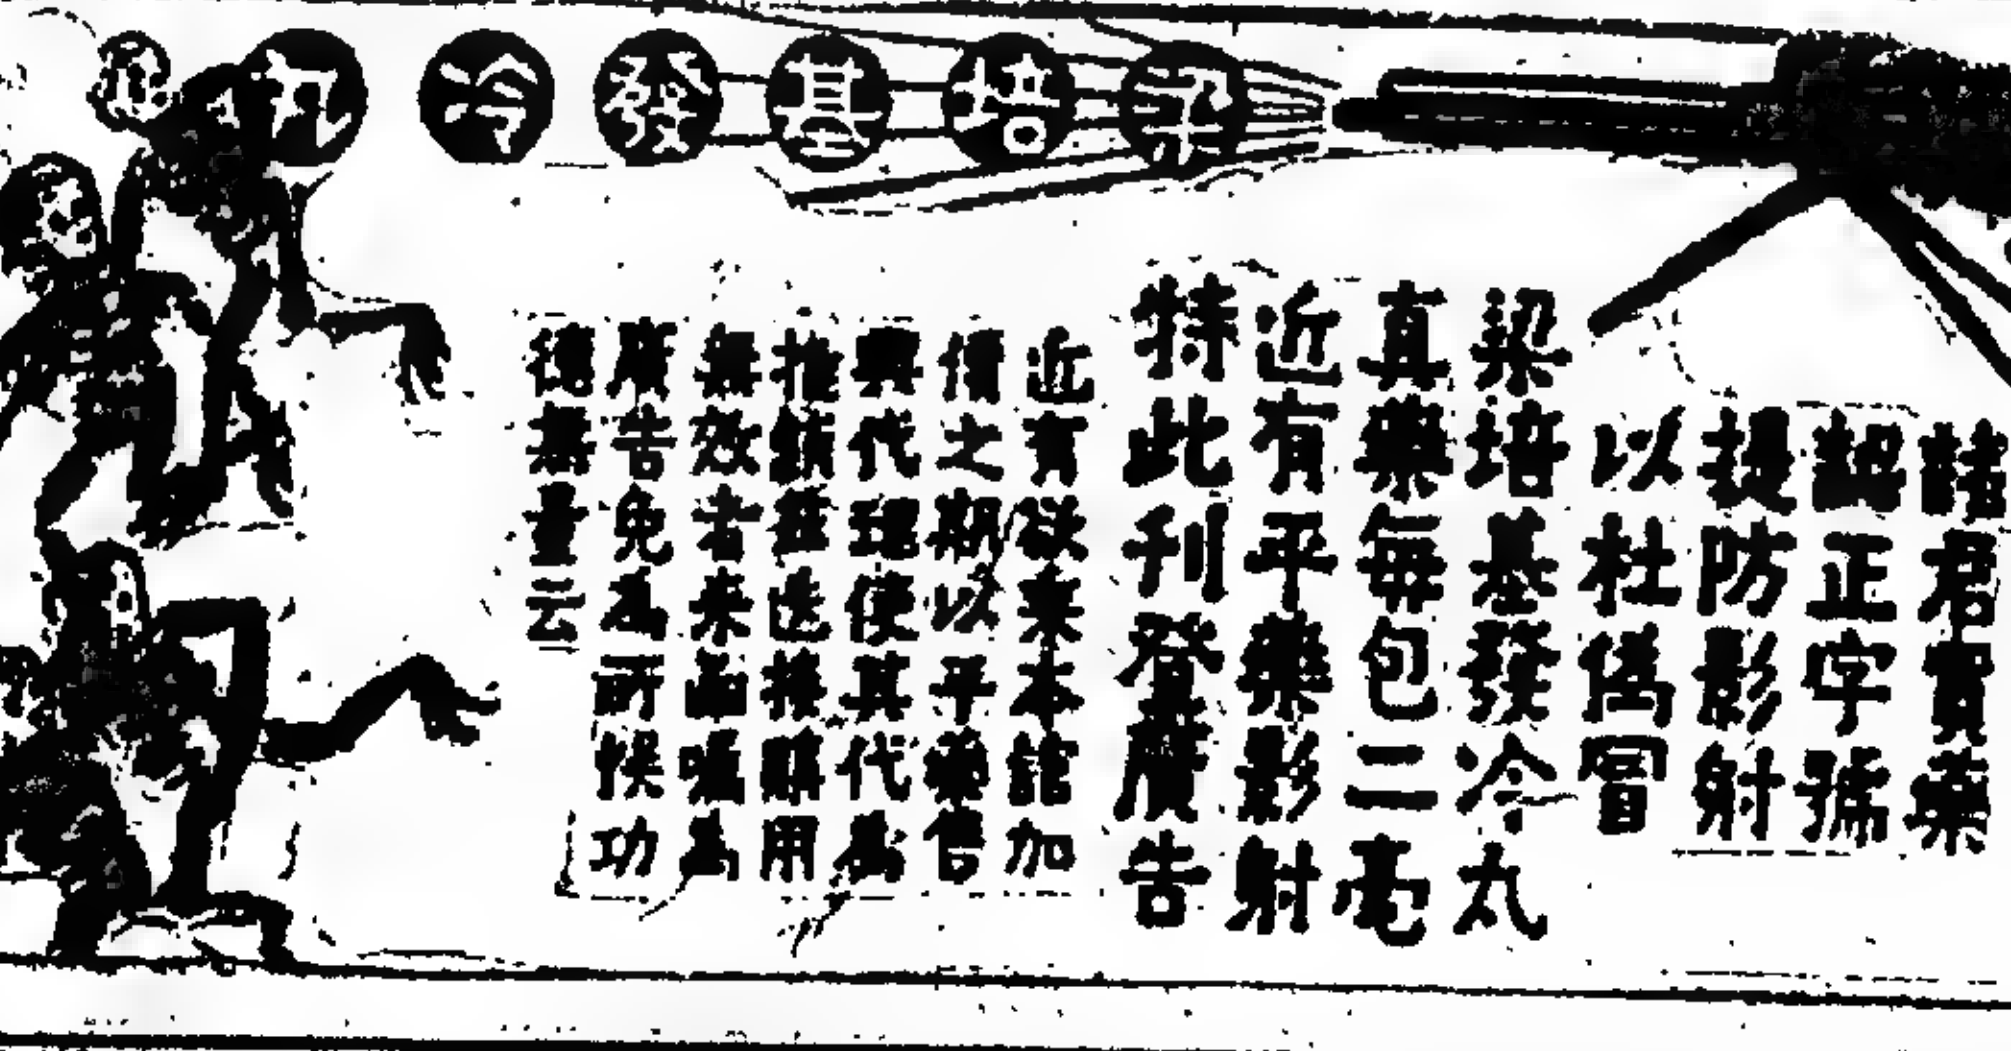 梁培基發冷丸
諸君買藥
認正字號
提防影射
以杜偽冒
梁培基發冷丸
真藥每包二毫
近有平藥影射
特此刊登廣告
近有欲來本館加
價之期以平藥售
與代理使其代為
推銷茲迭接購用
無效者来函囑為
廣告免為所悞功
德無量云